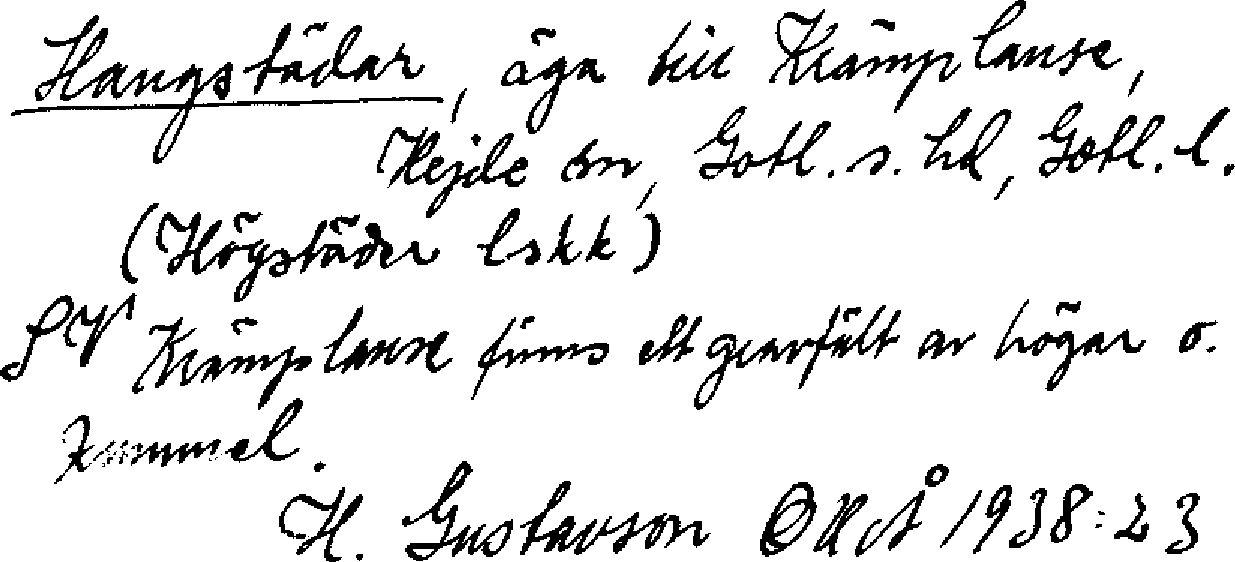 Haugstädar, äga till Krämplause,
Hejde sn, Gotl. s. hd, Gotl. l.
(Högstäder lskk)
SV Krämplause finns ett gravfält av högar o.
kummel.
H. Gustavson 1938:23